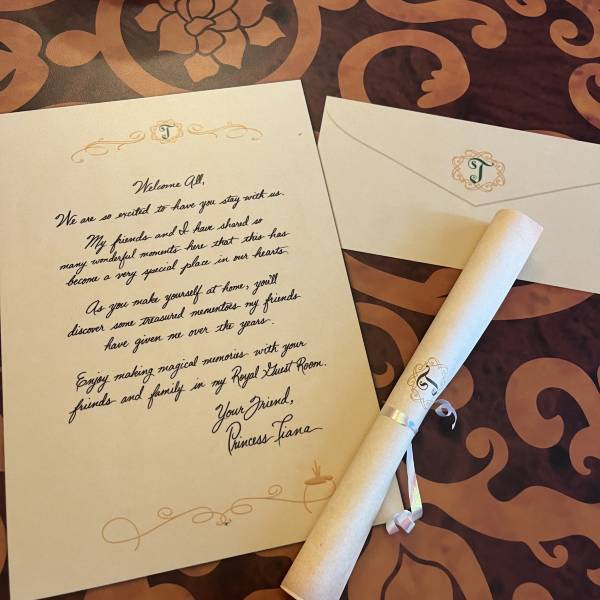 T
Welcome All,
We are so excited to have you stay with us.
My friends and I have shared so
many wonderful moments here that this has
become a very special place in our hearts.
As you make yourself at home, you'll
discover some treasured mementos my friends
have given me over the years.
Enjoy making magical memories with your
friends and family in my Royal Guest Room.
Your Friend,
Princess Tiana
T
T